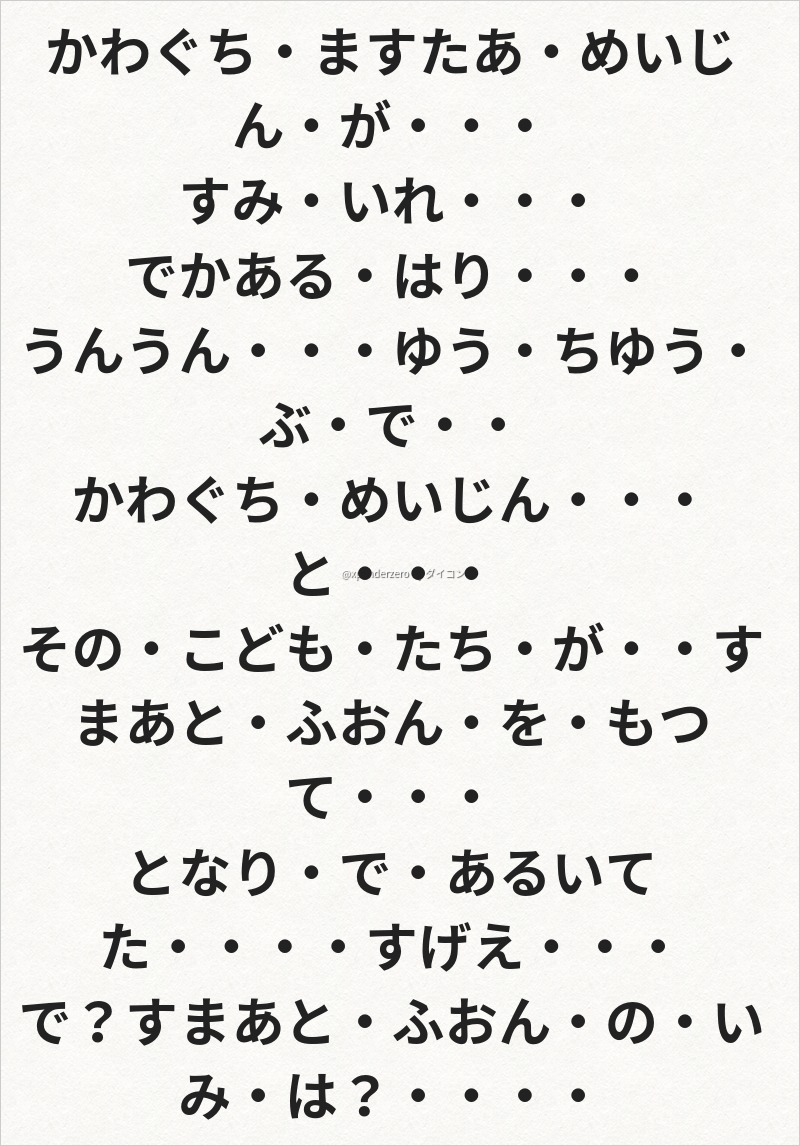 かわぐち・ますたあ・めいじ
ん・が・・・
すみ・いれ・・・
でかある・はり・・・
うんうん・・・ゆう・ちゆう・
ぶ・で・・
かわぐち・めいじん・・・
と・・・
その・こども・たち・が・・す
まあと・ふおん・を・もつ
て・・・
となり・で・あるいて
た・・・・すげえ・・・
で？すまあと・ふおん・の・い
み・は？・・・・